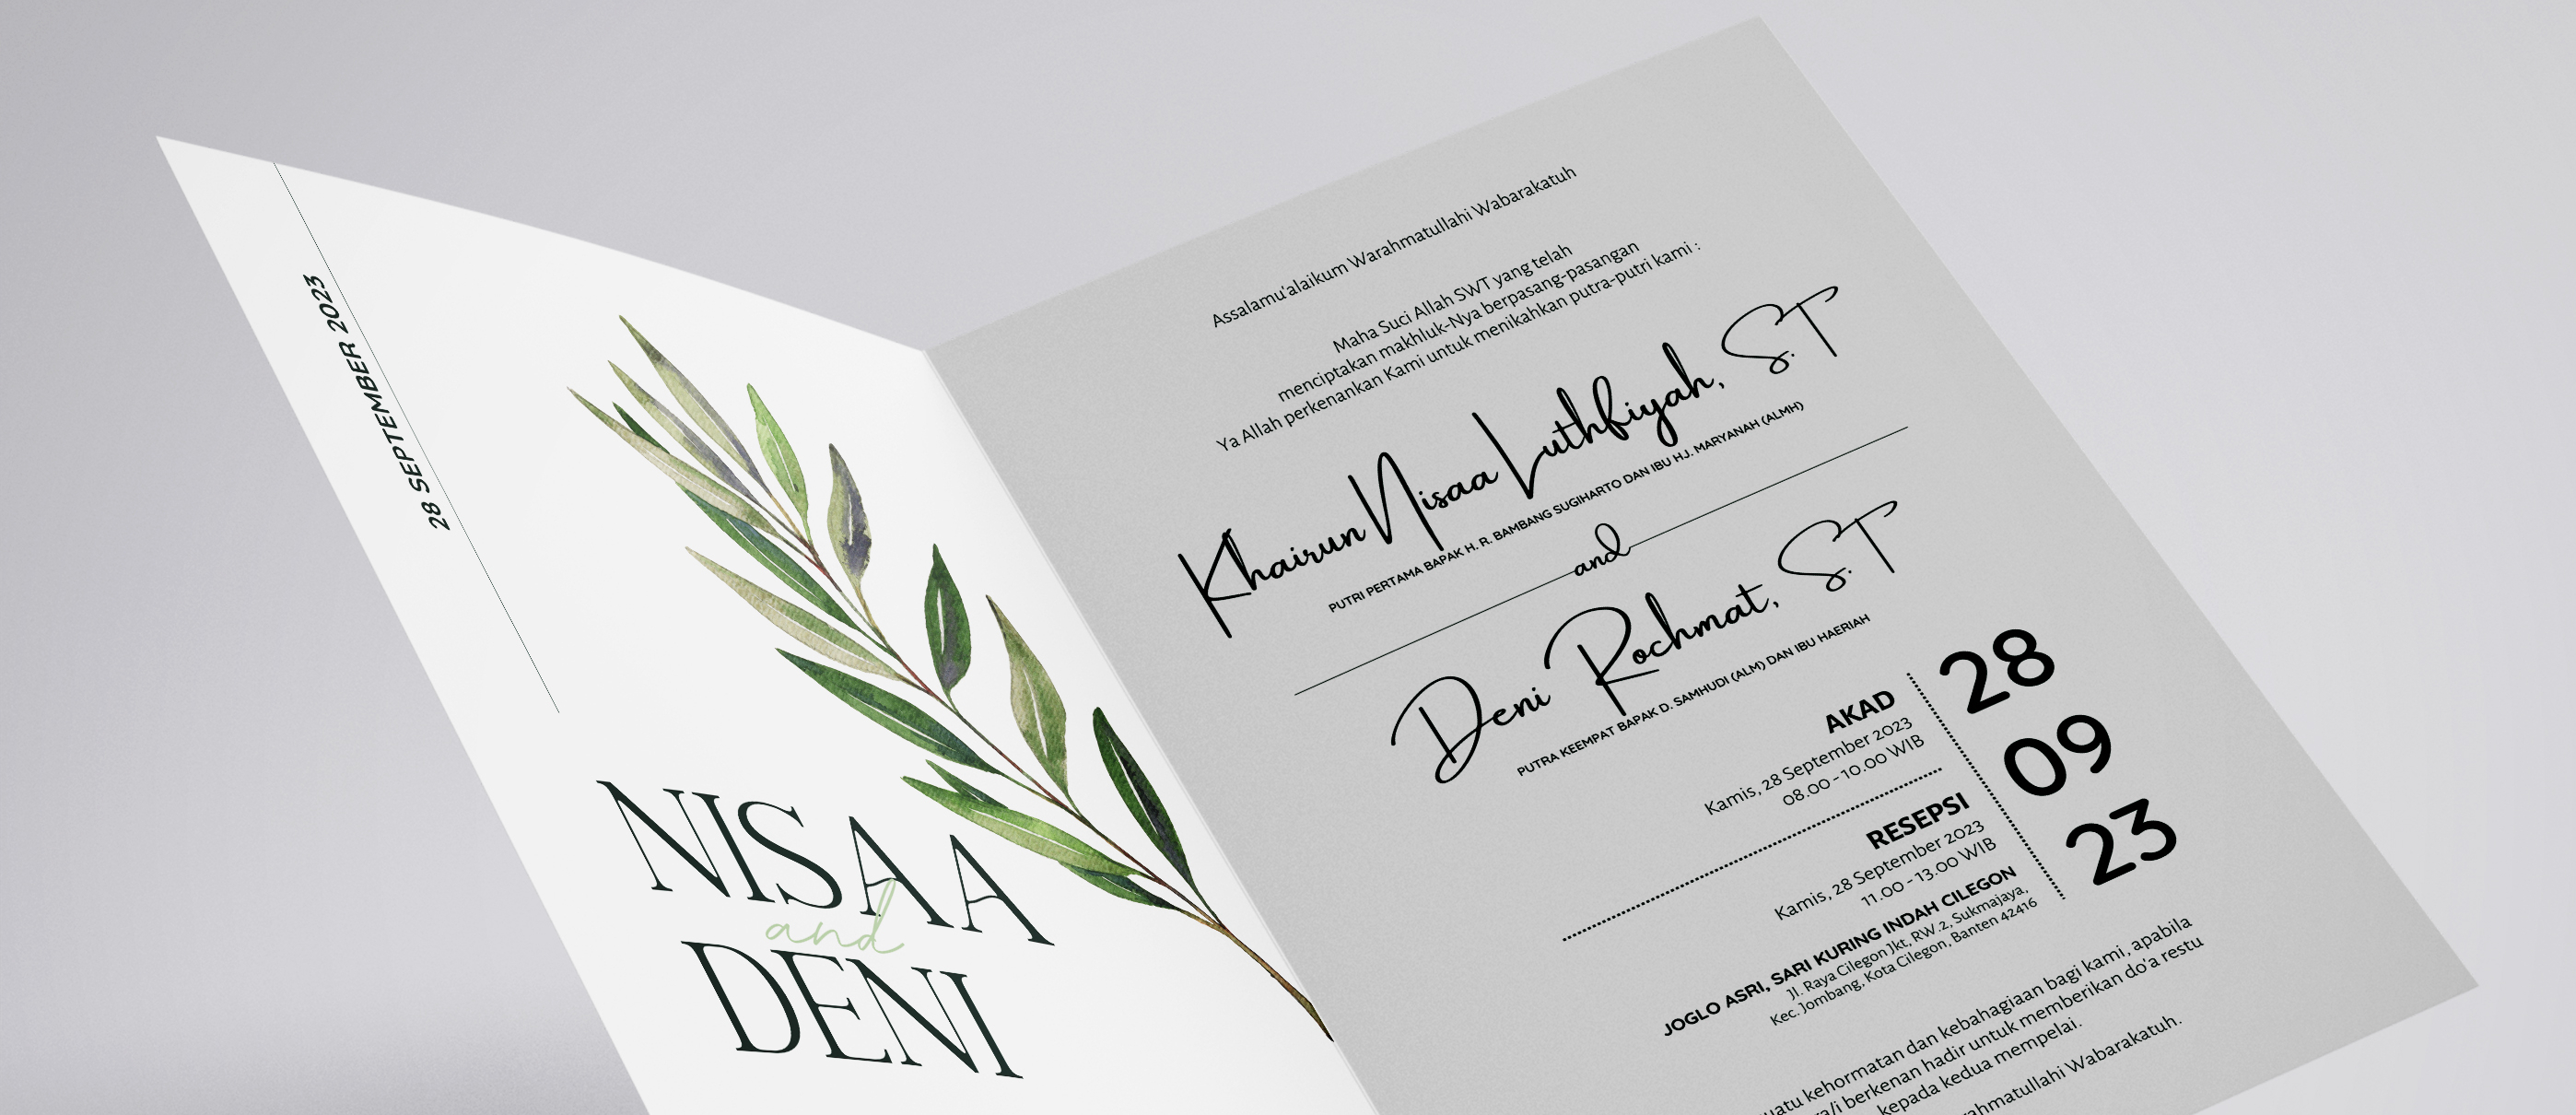 28 SEPTEMBER 2023
NISAA
and
DENI
Assalamu'alaikum Warahmatullahi Wabarakatuh
Maha Suci Allah SWT yang telah
menciptakan makhluk-Nya berpasang-pasangan
Ya Allah perkenankan Kami untuk menikahkan putra-putri kami :
Khairun Nisaa Luthfiyah, S.T
PUTRI PERTAMA BAPAK H. R. BAMBANG SUGIHARTO DAN IBU HJ. MARYANAH (ALMH)
and
Deni Rochmat, S.T
PUTRA KEEMPAT BAPAK D. SAMHUDI (ALM) DAN IBU HAERIAH
AKAD
Kamis, 28 September 2023
08.00 - 10.00 WIB
RESEPSI
Kamis, 28 September 2023
11.00 - 13.00 WIB
JOGLO ASRI, SARI KURING INDAH CILEGON
Jl. Raya Cilegon Jkt, RW.2, Sukmajaya,
Kec. Jombang, Kota Cilegon, Banten 42416
28
09
23
kehormatan dan kebahagiaan bagi kami, apabila
berkenan hadir untuk memberikan do'a restu
kepada kedua mempelai.
Wabarakatuh.